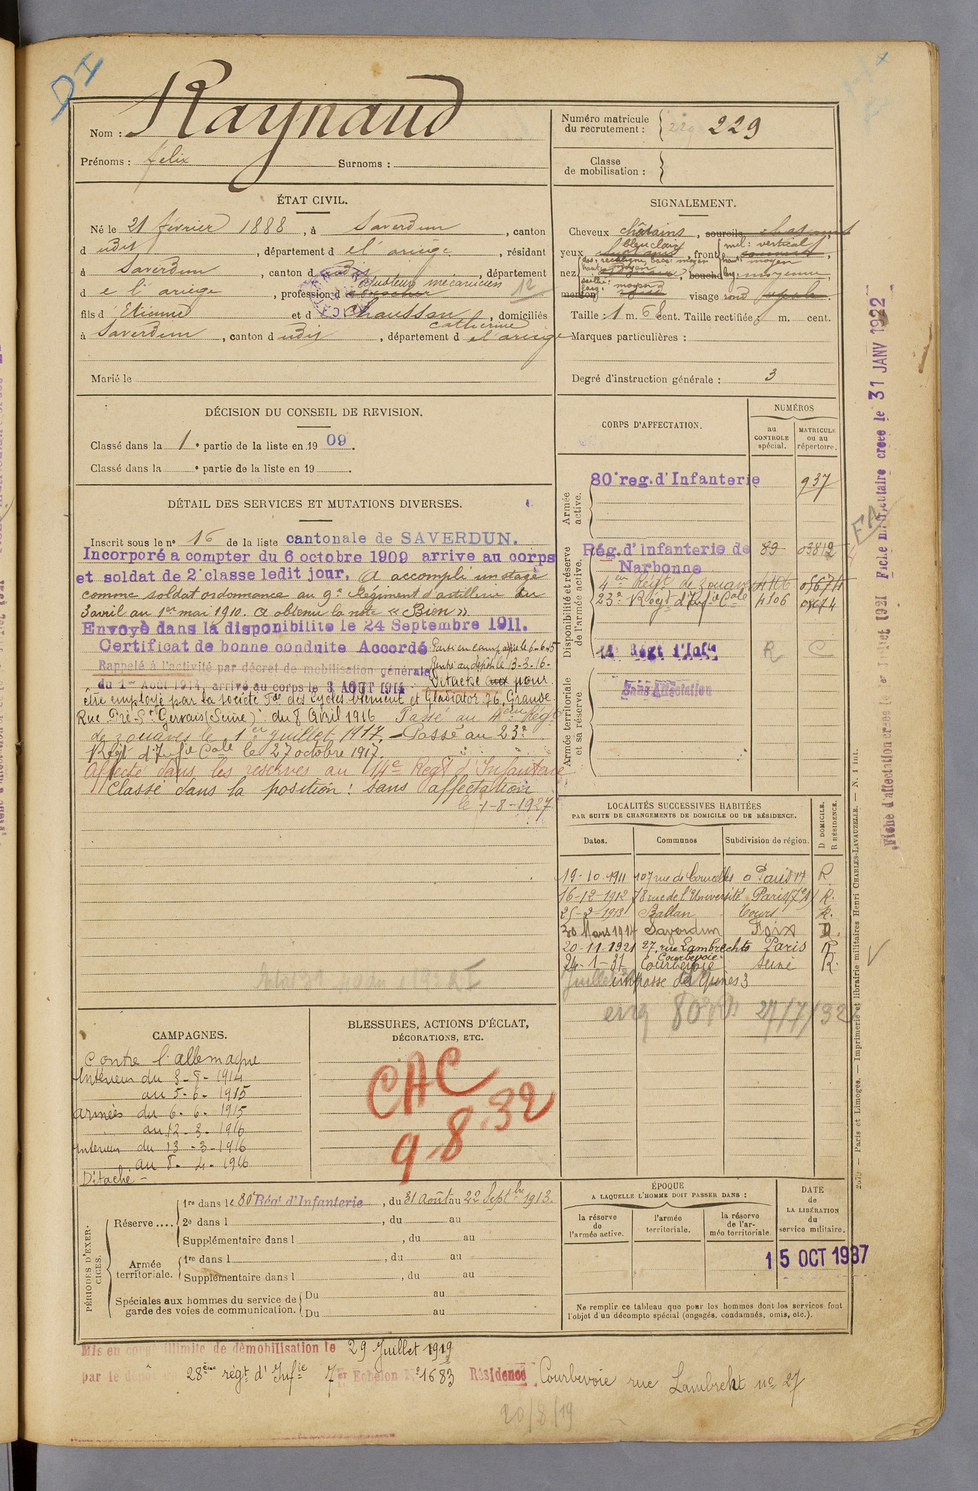 Nom : Raynaud
Prénoms : felix Surnoms :
Numéro matricule
du recrutement : 229
Classe
de mobilisation :
ÉTAT CIVIL.
Né le 21 février 1888, à Saverdun, canton
d udit, département d e l'ariège, résidant
à Saverdun, canton d udit, département
d e l'ariège, profession d ajusteur mécanicien 12
fils d' Etienne et d Chausson Catherine, domiciliés
à Saverdun, canton d udit, département d e l'ariège
Marié le
SIGNALEMENT.
Cheveux châtains, sourcils
yeux bleu clair, front incl: vertical
haut: moyen
nez, bouche moyenne
menton visage rond
Taille : 1 m. 6 cent. Taille rectifiée : m. cent.
Marques particulières :
Degré d'instruction générale : 3
DÉCISION DU CONSEIL DE REVISION.
Classé dans la 1re partie de la liste en 1909.
Classé dans la e partie de la liste en 19
DÉTAIL DES SERVICES ET MUTATIONS DIVERSES.
Inscrit sous le n° 16 de la liste cantonale de SAVERDUN.
Incorporé a compter du 6 octobre 1909 arrive au corps
et soldat de 2e classe ledit jour. A accompli un stage
comme soldat ordonnance au 9e Régiment d'artillerie du
3 avril au 1er mai 1910. A obtenu la note « Bien ».
Envoyé dans la disponibilite le 24 Septembre 1911.
Certificat de bonne conduite Accordé Parti en camp agne le 6-6-15
Rappelé à l'activité par décret de mobilisation générale Rentré au dépôt le 13-3-16-
du 1er Août 1914, arrivé au corps le 3 AOUT 1914 Détaché pour
être employé par la société fse des cycles Clément et Gladiator 76, Grande
Rue Pré St Gervais (Seine) du 8 Avril 1916 Passé au 4e Régt
de zouaves le 1er juillet 1917. Passé au 23e
Régt d'Infie Cale le 27 octobre 1917.
Affecté dans les reserves au 14e Regt d'Infanterie
Classé dans la position : sans affectation
le 1-8-1927
CORPS D'AFFECTATION.
NUMÉROS
au
CONTROLE
spécial.
MATRICULE
ou au
répertoire.
Armée
active.
80e reg. d'Infanterie 937
Disponibilité et réserve
de l'armée active.
Rég. d'Infanterie de 89 03812
Narbonne
4e Régt de zouaves
23e Régt d'Infie Cale 4106
14 Régt d'Infie R C
Armée territoriale
et sa réserve.
Sans Affectation
LOCALITÉS SUCCESSIVES HABITÉES
PAR SUITE DE CHANGEMENTS DE DOMICILE OU DE RÉSIDENCE.
Dates. Communes Subdivision de région. D DOMICILE. R RÉSIDENCE.
19-10-1911 107 rue de Courcelles Paris 17 R.
16-12-1912 78 rue de l'Université Paris (7e) R.
25-2-1913 Ballan Tours R.
30 Mars 1914 Saverdun Foix D.
20-11-1921 27, rue Lambrechts Paris R
Courbevoie
24-1-31 Courbevoie Seine R.
27/7/32
CAMPAGNES.
Contre l'allemagne
Intérieur du 3-8-1914
au 5-6-1915
armées du 6-6-1915
au 12-3-1916
Intérieur du 13-3-1916
au 8-4-1916
Détaché -
BLESSURES, ACTIONS D'ÉCLAT,
DÉCORATIONS, ETC.
CAC
9-8-32
PÉRIODES D'EXERCICES.
Réserve .... 1re dans le 80e Rég! d'Infanterie, du 31 Août au 22 Septbre 1913.
2e dans l , du au
Supplémentaire dans l , du au
Armée
territoriale. 1re dans l , du au
Supplémentaire dans l , du au
Spéciales aux hommes du service de
garde des voies de communication. Du au
Du au
ÉPOQUE
A LAQUELLE L'HOMME DOIT PASSER DANS :
la réserve
de
l'armée active.
l'armée
territoriale.
la réserve
de l'ar-
mée territoriale
DATE
de
LA LIBÉRATION
du
service militaire.
15 OCT 1937
Ne remplir ce tableau que pour les hommes dont les services font
l'objet d'un décompte spécial (engagés, condamnés, omis, etc.).
Mis en congé illimité de démobilisation le 29 Juillet 1919
par le dépôt 28ème régt d'Infie 7er Echelon N° 1683 Résidence Courbevoie rue Lambrecht n° 27
20/8/19
Fiche matriculaire créée le 31 JANV 1922
2679 — Paris et Limoges. — Imprimerie et librairie militaires Henri CHARLES-LAVAUZELLE. — N. 1 int.